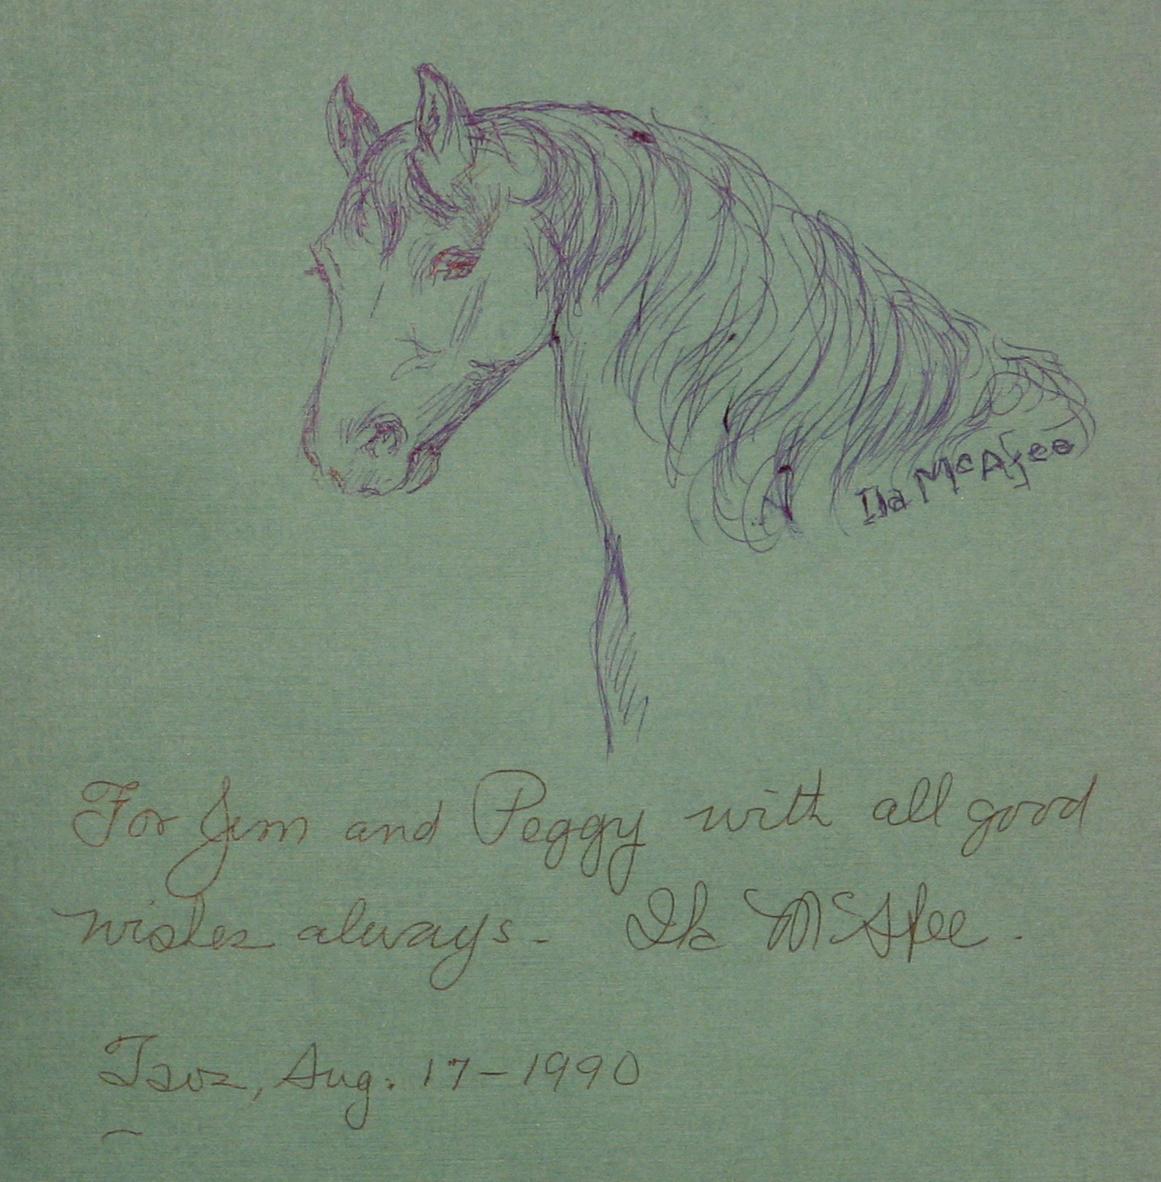 Ila McAfee
For Jim and Peggy with all good
wishes always. Ila McAfee.
Taos, Aug. 17-1990